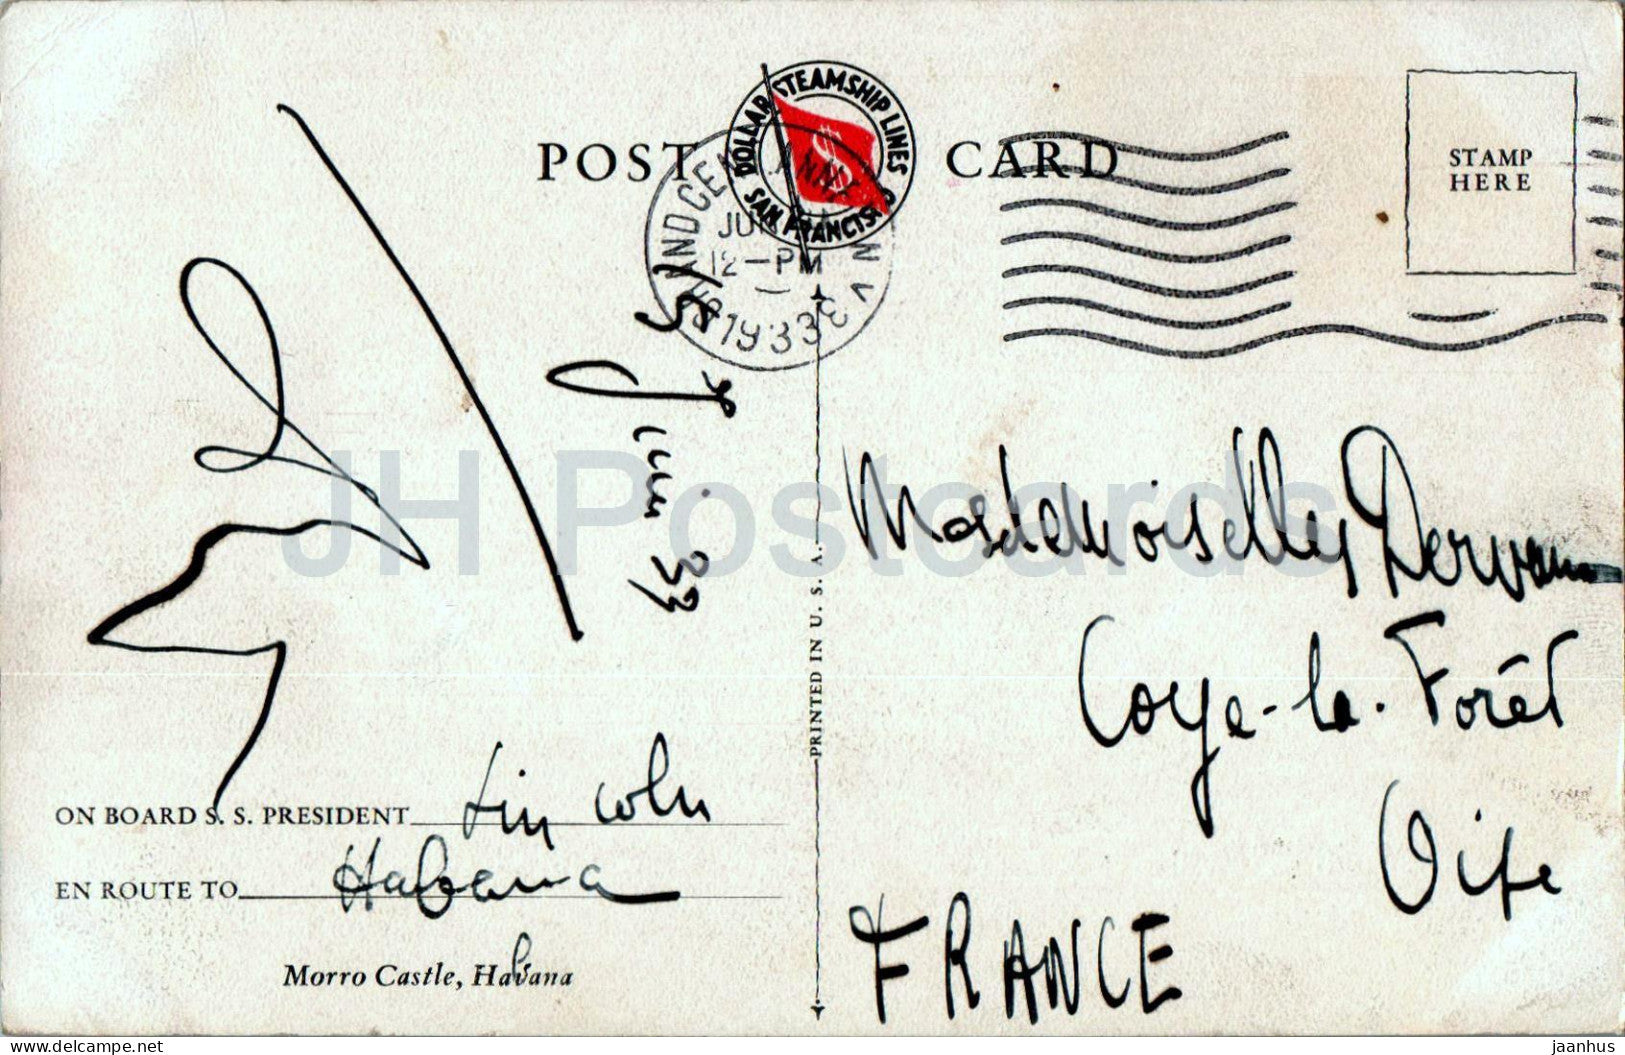 POST CARD
DOLLAR STEAMSHIP LINES
SAN FRANCISCO
$
STAMP
HERE
JUN
12-PM
1933
N.Y.
Juin 33
JH Postcards
Mademoiselles
Coye-la-Forêt
Oise
FRANCE
PRINTED IN U. S. A.
ON BOARD S. S. PRESIDENT Lincoln
EN ROUTE TO Habana
Morro Castle, Habana
www.delcampe.com
jaanhus